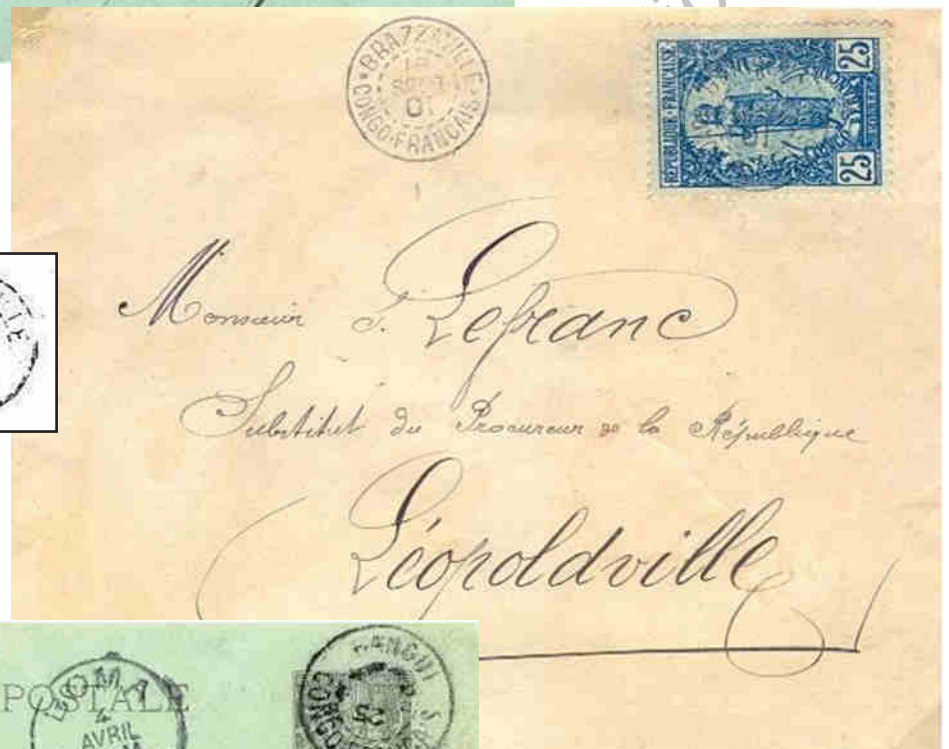 BRAZZAVILLE
CONGO-FRANÇAIS
RÉPUBLIQUE - FRANÇAISE
25
25
Monsieur J. Lefranc
Substitut du Procureur de la République
Léopoldville
POSTALE
BOMA
4
AVRIL
BANGUI
25